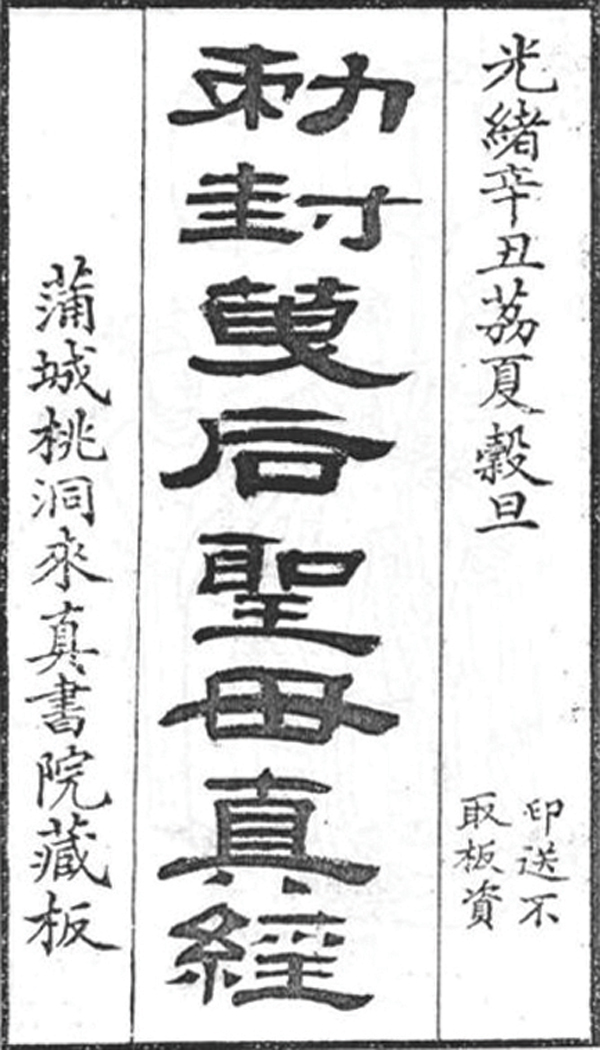 光緒辛丑荔夏穀旦
印送不
取板資
勅封后聖母真經
蒲城桃洞來真書院藏板